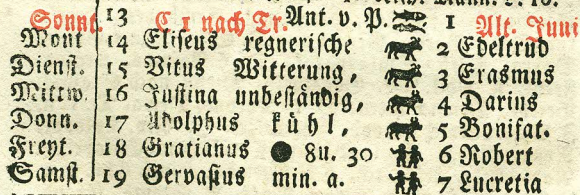 Sonnt. 13 C 1 nach Tr. Ant. v. P. 1 Alt. Juni
Mont 14 Eliseus regnerische 2 Edeltrud
Dienst. 15 Vitus Witterung, 3 Erasmus
Mittw. 16 Justina unbeständig, 4 Darius
Donn. 17 Adolphus kühl, 5 Bonifat.
Freyt. 18 Gratianus ● 8u. 30 6 Robert
Samst. 19 Gervasius min. a. 7 Lucretia